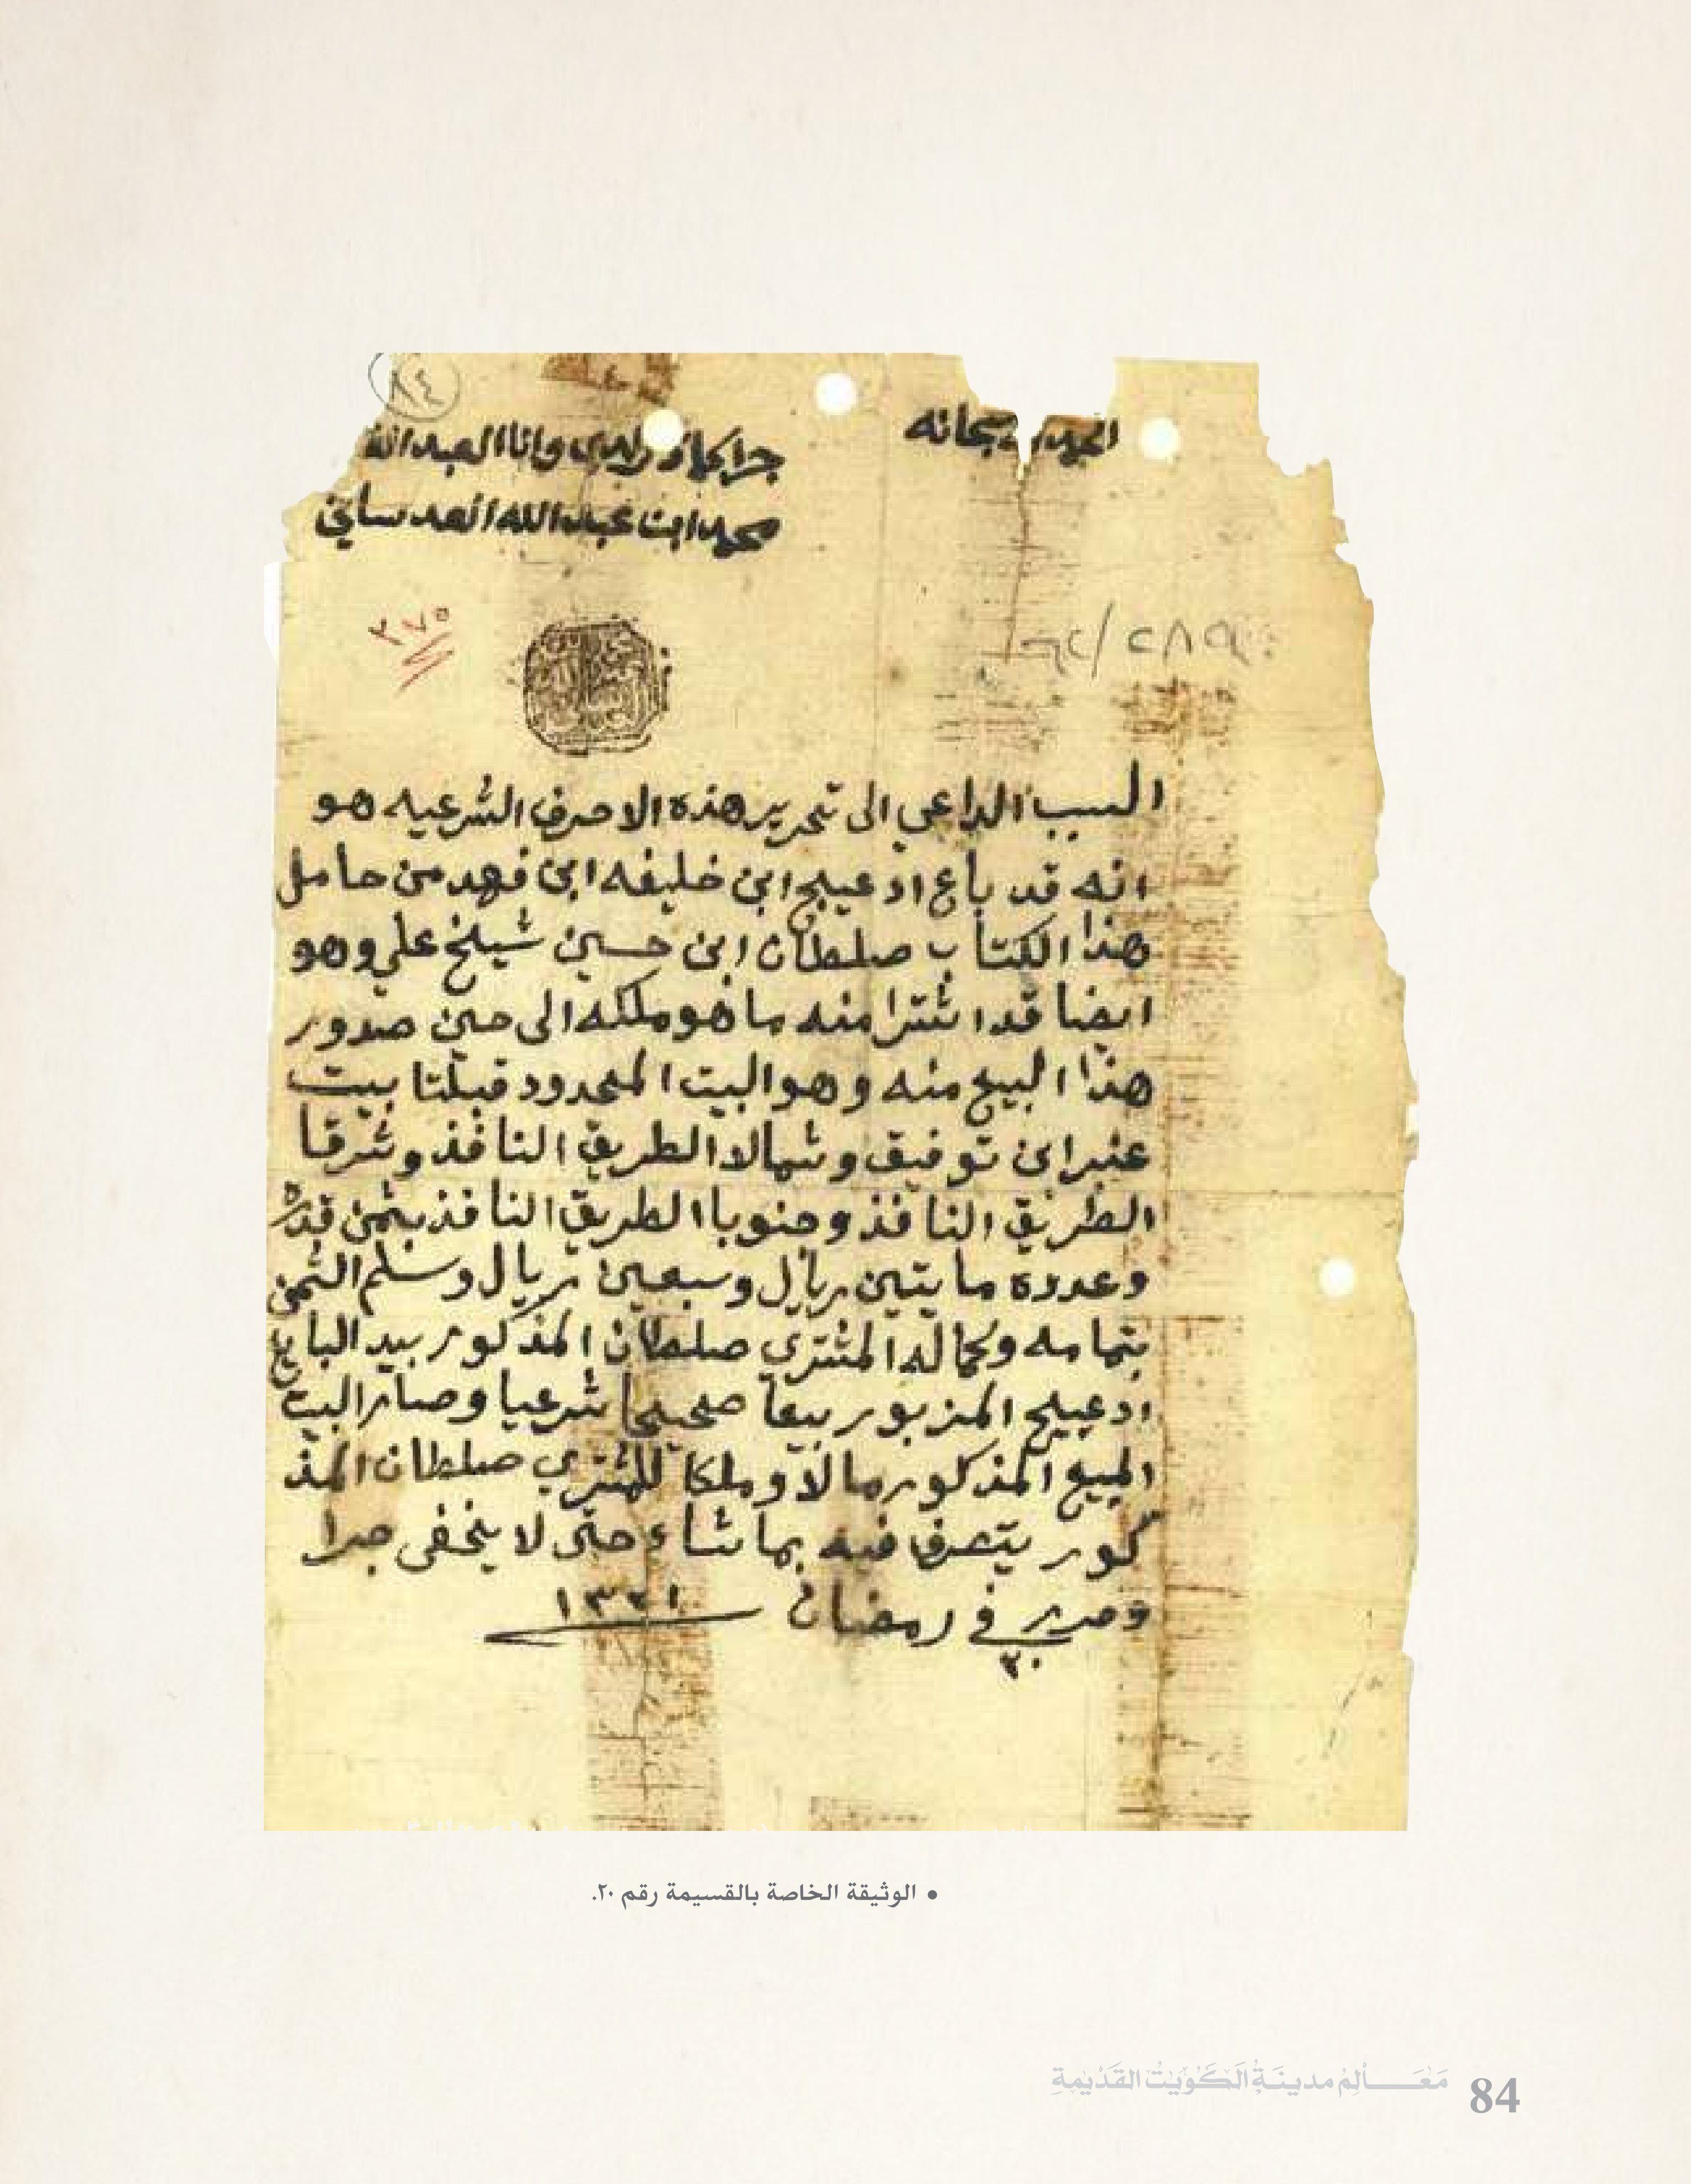 ٨٤
الحمد لله سبحانه
جرا كما ذكر لدي وانا العبد
محمد ابن عبدالله العدساني
٢٧٥
السبب الداعي الى تحرير هذه الاحرف الشرعيه هو
انه قد باع ادعيج ابن خليفه ابن فهد من حامل
هذا الكتاب صلطان ابن حسين شيخ علي وهو
ايضا قد اشترا منه ما هو ملكه الى حين صدور
هذا البيع منه وهو البيت المحدود قبلتا بيت
عنبر ابن توفيق وشمالا الطريق النافذ وشرقا
الطريق النافذ وجنوبا الطريق النافذ بثمن قدره
وعدده مايتين ريال وسبعين ريال وسلم الثمن
بتمامه وكماله المشتري صلطان المذكور بيد البايع
ادعيج المزبور بيعا صحيحا شرعيا وصار البيت
المبيع المذكور مالا وملكا للمشتري صلطان المذ
كور يتصرف فيه بما شاء حتى لا يخفى جرا
وحرير في رمضان ١٣٢١
٢٠
• الوثيقة الخاصة بالقسيمة رقم ٢٠.
مَعَالِمُ مدينَةِ الكُوَيْت القَدْيمَةِ 84